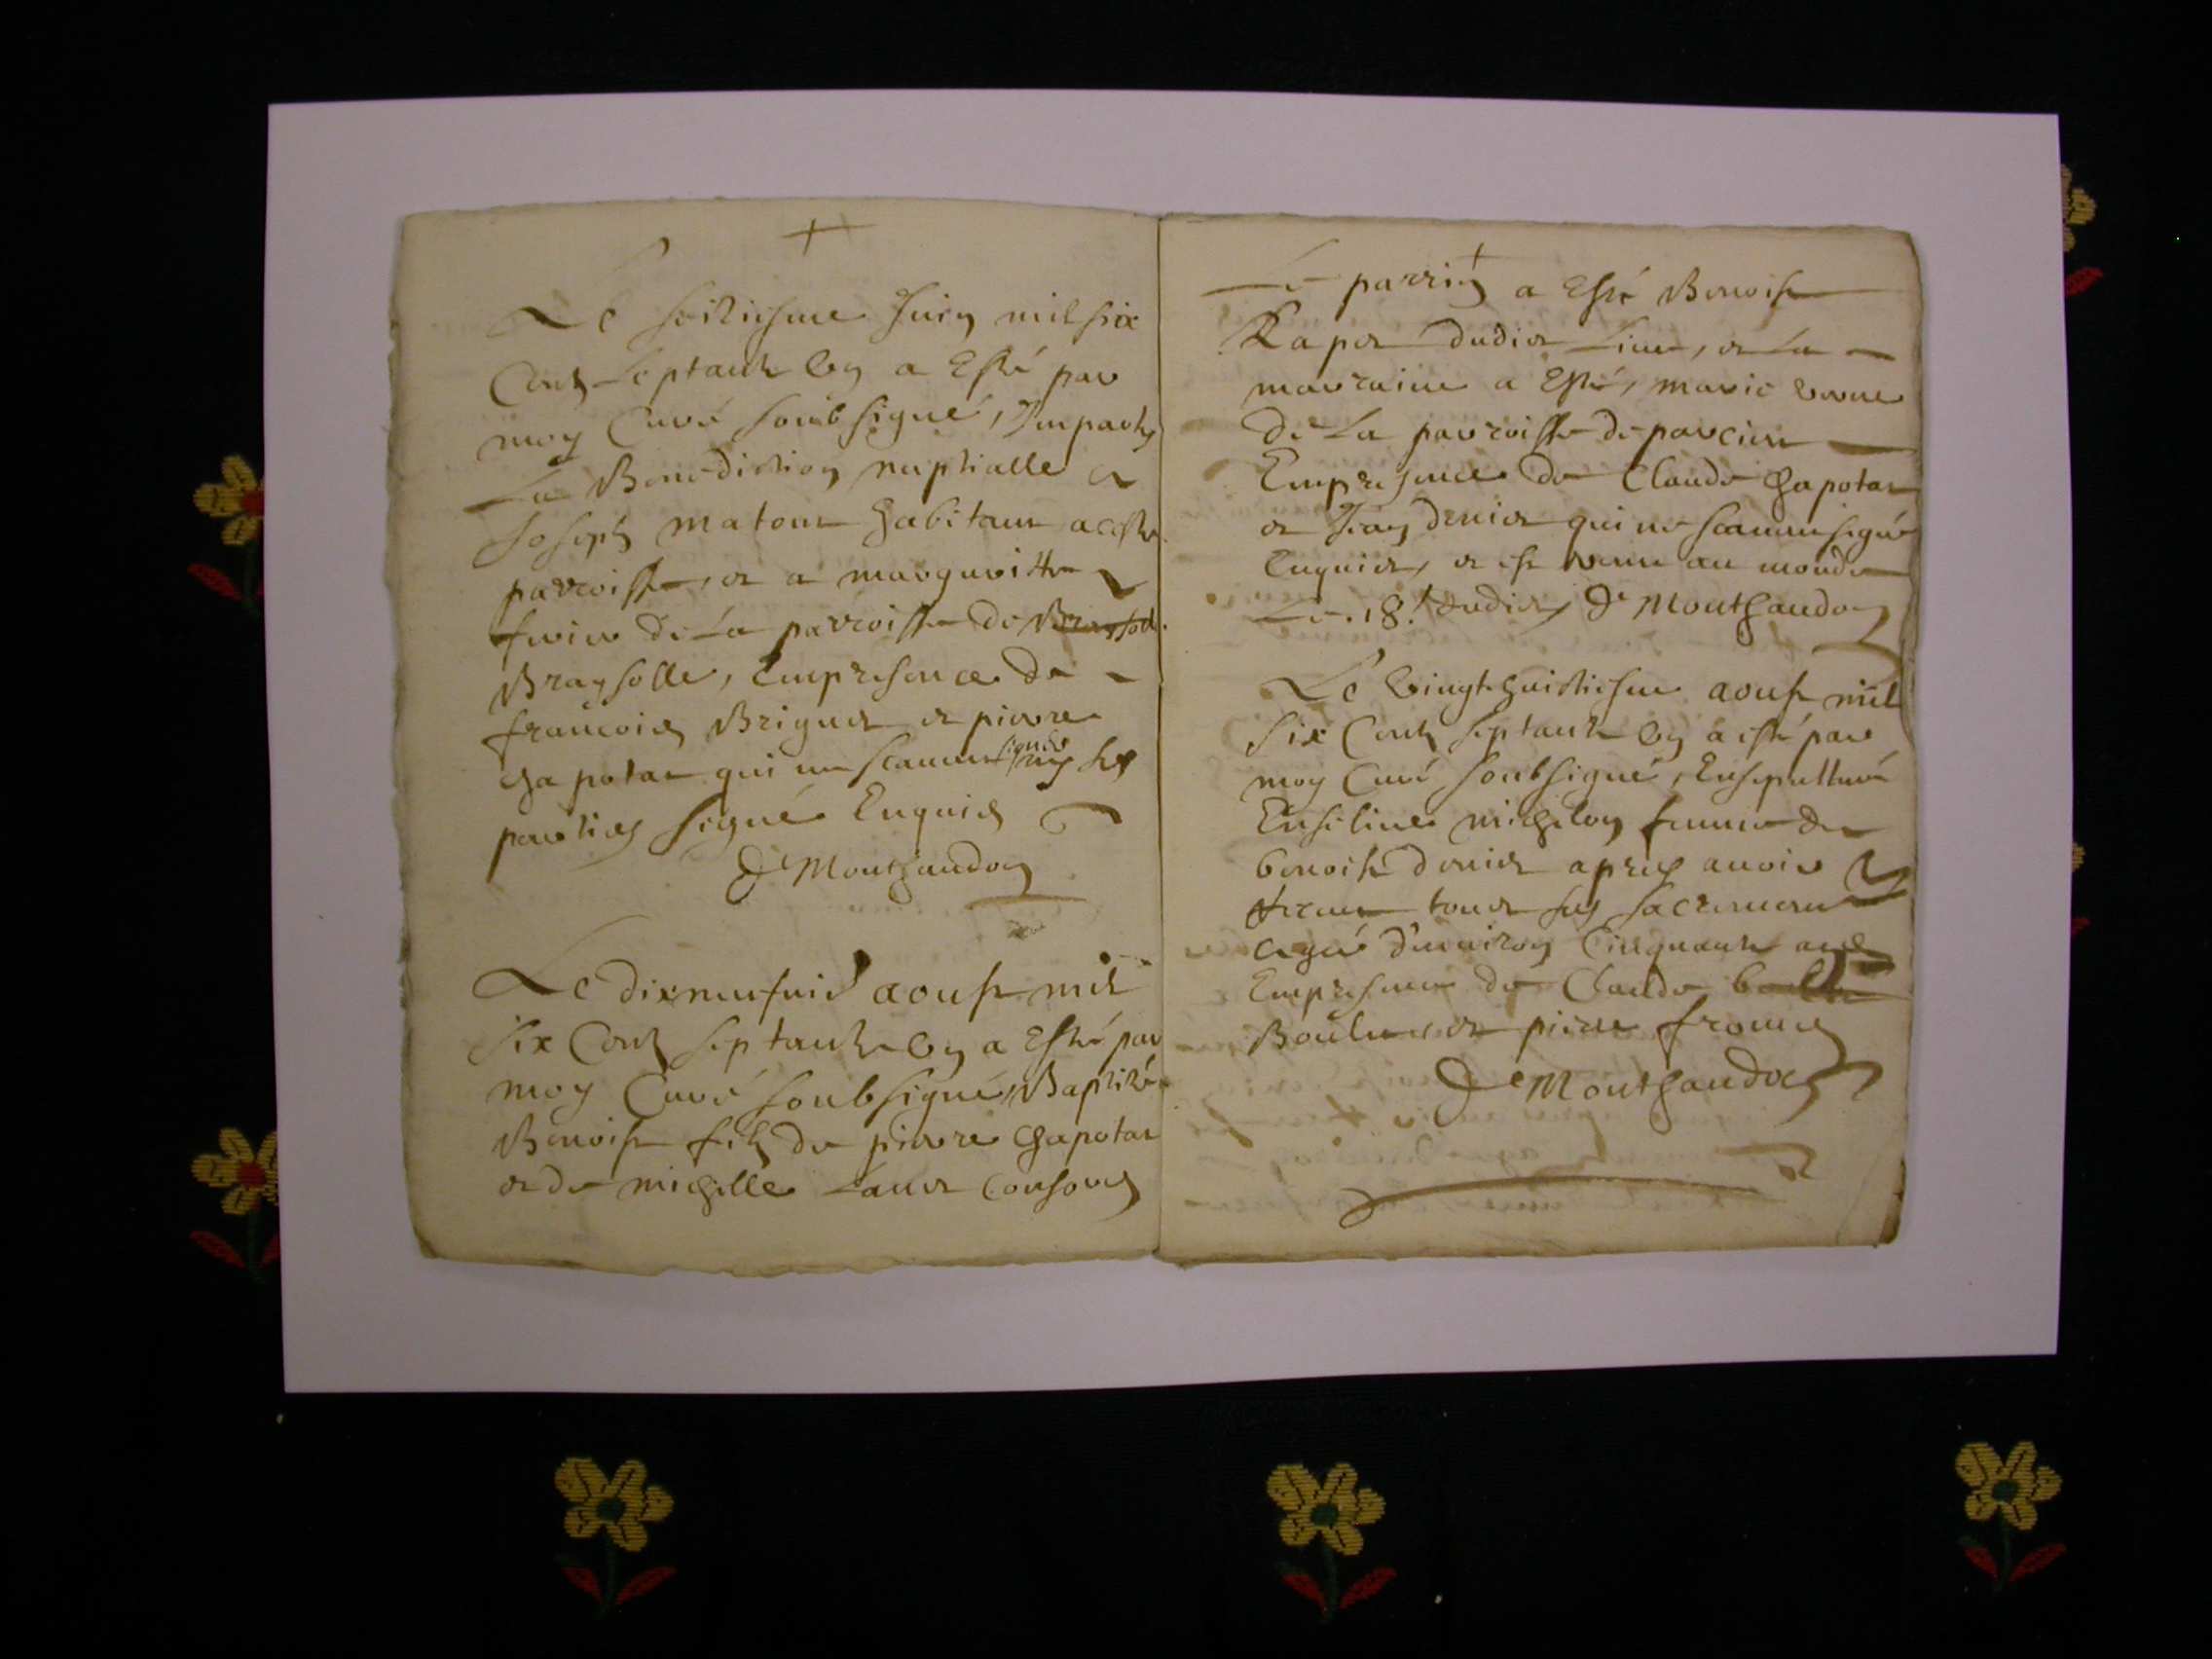 +
Le seiziesme Juin mil six
Cents septante Un a Esté par
moy Curé soubsigné, Impartye
La Benediction nuptialle a
Joseph matout habitant a ceste
parroisse, et a margueritte
de La parroisse de
Braysolle, Empresence de
francois Briguet et pierre
Chapotat qui ne scavent signer ny les
parties signé Enquis
De Monthaudon
Le dixneufvie aoust mil
six Cents septante Un a Esté par
moy Curé soubsigné, Baptizé
Benoist fils de pierre Chapotat
et de michelle Lauet Consors
+
Le parrin a Esté Benoist
Rapot dudict Lieu, et La
marraine a Esté, marie
de La parroisse de
Empresence de Claude Chapotat
et Jean denict qui ne scavent signer
Enquis, et est venu au monde
Le .18. dudict De Monthaudon
Le Vingt huictiesme aoust mil
six Cents septante Un a esté par
moy Curé soubsigné, Ensepulturé
michelon femme de
benoist denict apres avoir
receu tout ses sacrements
agée d'environ Cinquante ans
Empresence de Claude
Boulu et pierre
De Monthaudon